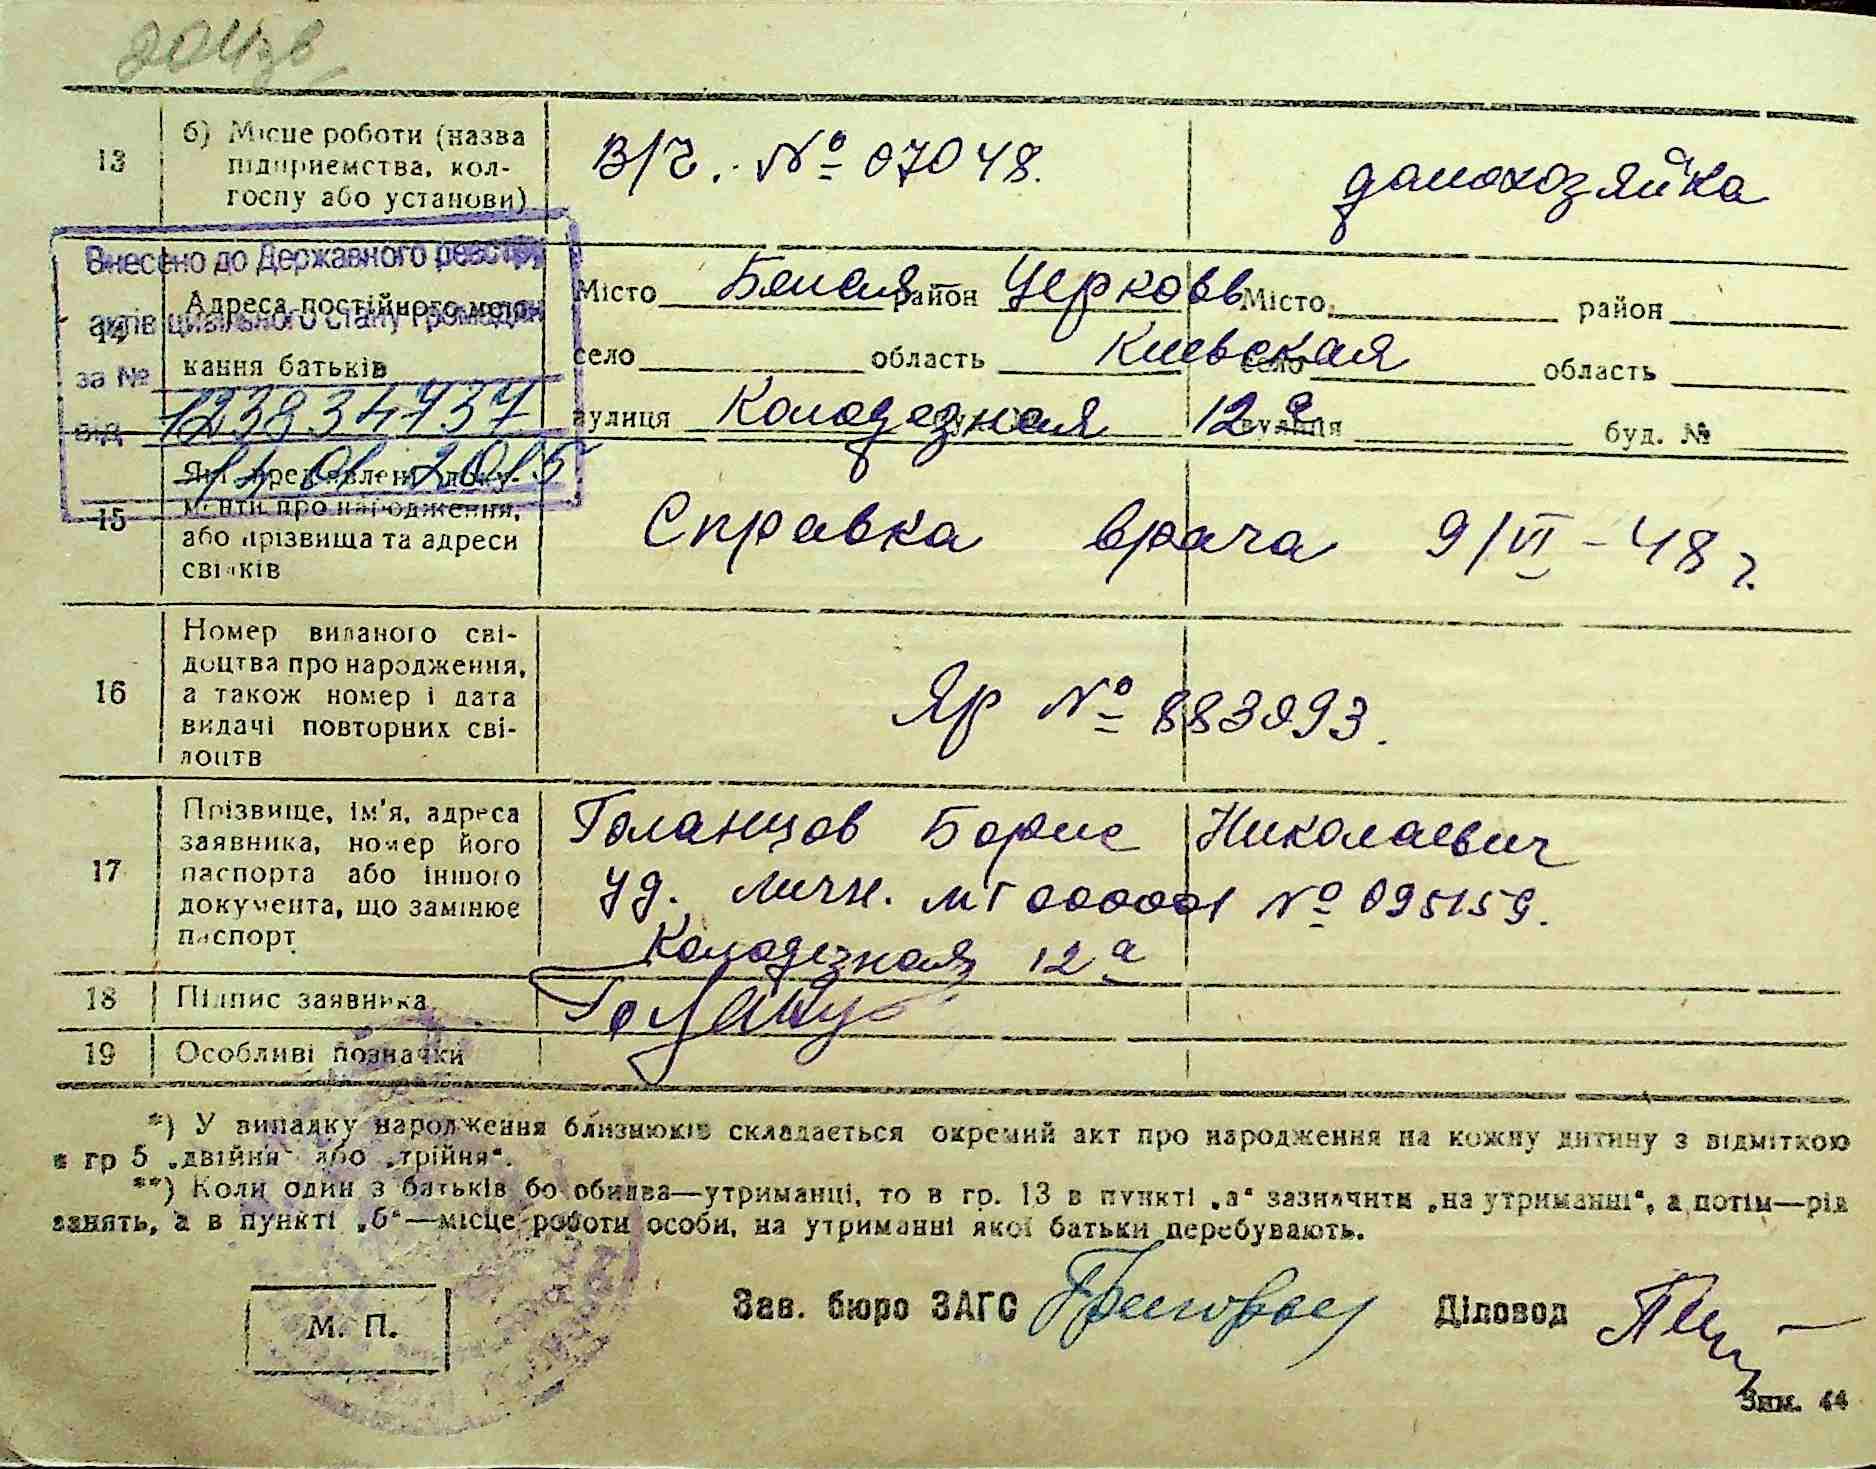 13
б) Місце роботи (назва
підприємства, кол-
госпу або установи)
В/ч. № 07048.
домохозяйка
Внесено до Державного реєстру
актів цивільного стану громадян
за № 123834737
від 14.01.2015
14
Адреса постійного меш-
кання батьків
Місто Белая район Церковь
село область Киевская
вулиця Колодезная 12а
Місто район
село область
вулиця буд. №
15
Які пред'явлені доку-
менти про народження,
або прізвища та адреси
свідків
Справка врача 9/VI – 48 г.
16
Номер виданого сві-
доцтва про народження,
а також номер і дата
видачі повторних сві-
доцтв
Яр № 883993.
17
Прізвище, ім'я, адреса
заявника, номер його
паспорта або іншого
документа, що замінює
паспорт
Голанцов Борис Николаевич
уд. личн. МГ 000001 № 095159.
Колодезная 12а
18
Підпис заявника
19
Особливі позначки
*) У випадку народження близнюків складається окремий акт про народження на кожну дитину з відміткою
в гр 5 „двійня“ або „трійня“.
**) Коли один з батьків бо обидва—утриманці, то в гр. 13 в пункті „а“ зазначити „на утриманні“, а потім—рід
занять, а в пункті „б“—місце роботи особи, на утриманні якої батьки перебувають.
М. П.
Зав. бюро ЗАГС
Діловод
Зам. 44